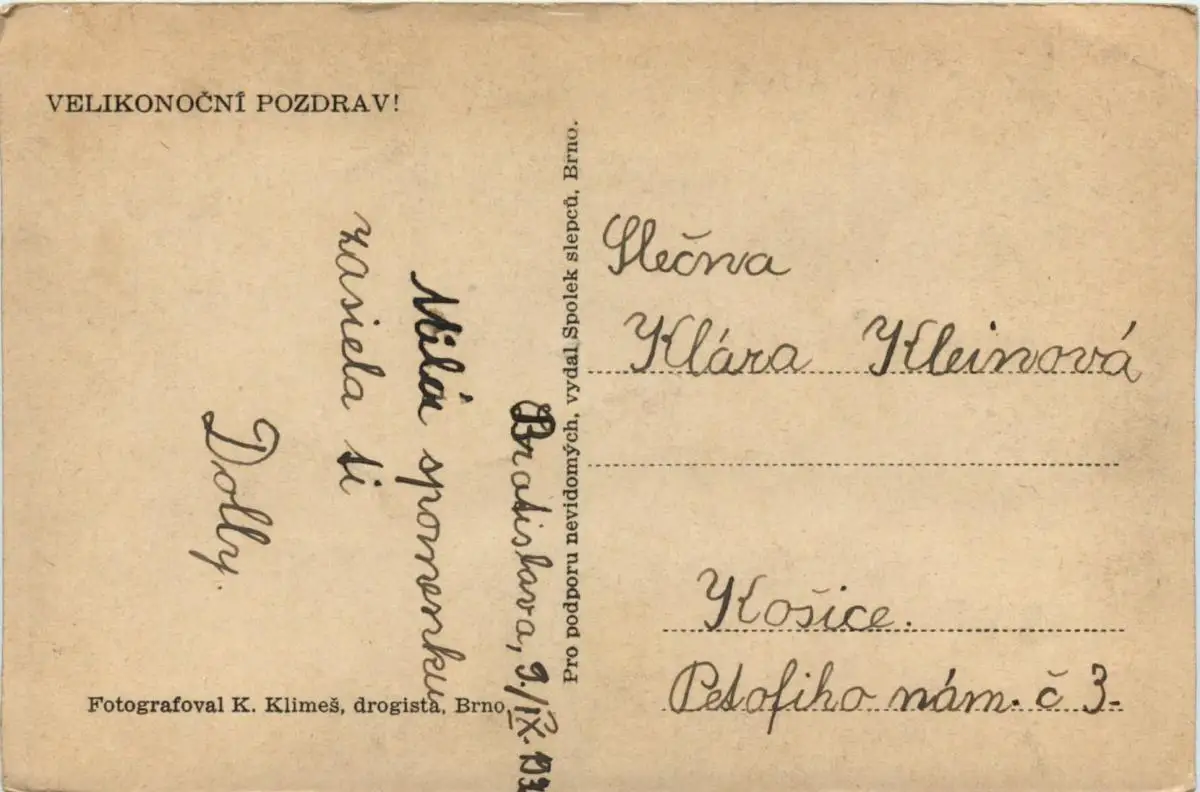 VELIKONOČNÍ POZDRAV!
Bratislava, 9./IX. 193
Milú spomenku
zasiela ti
Dolly.
Fotografoval K. Klimeš, drogista, Brno.
Pro podporu nevidomých, vydal Spolek slepců, Brno.
Slečna
Klára Kleinová
Košice.
Petofiho nám. č 3.